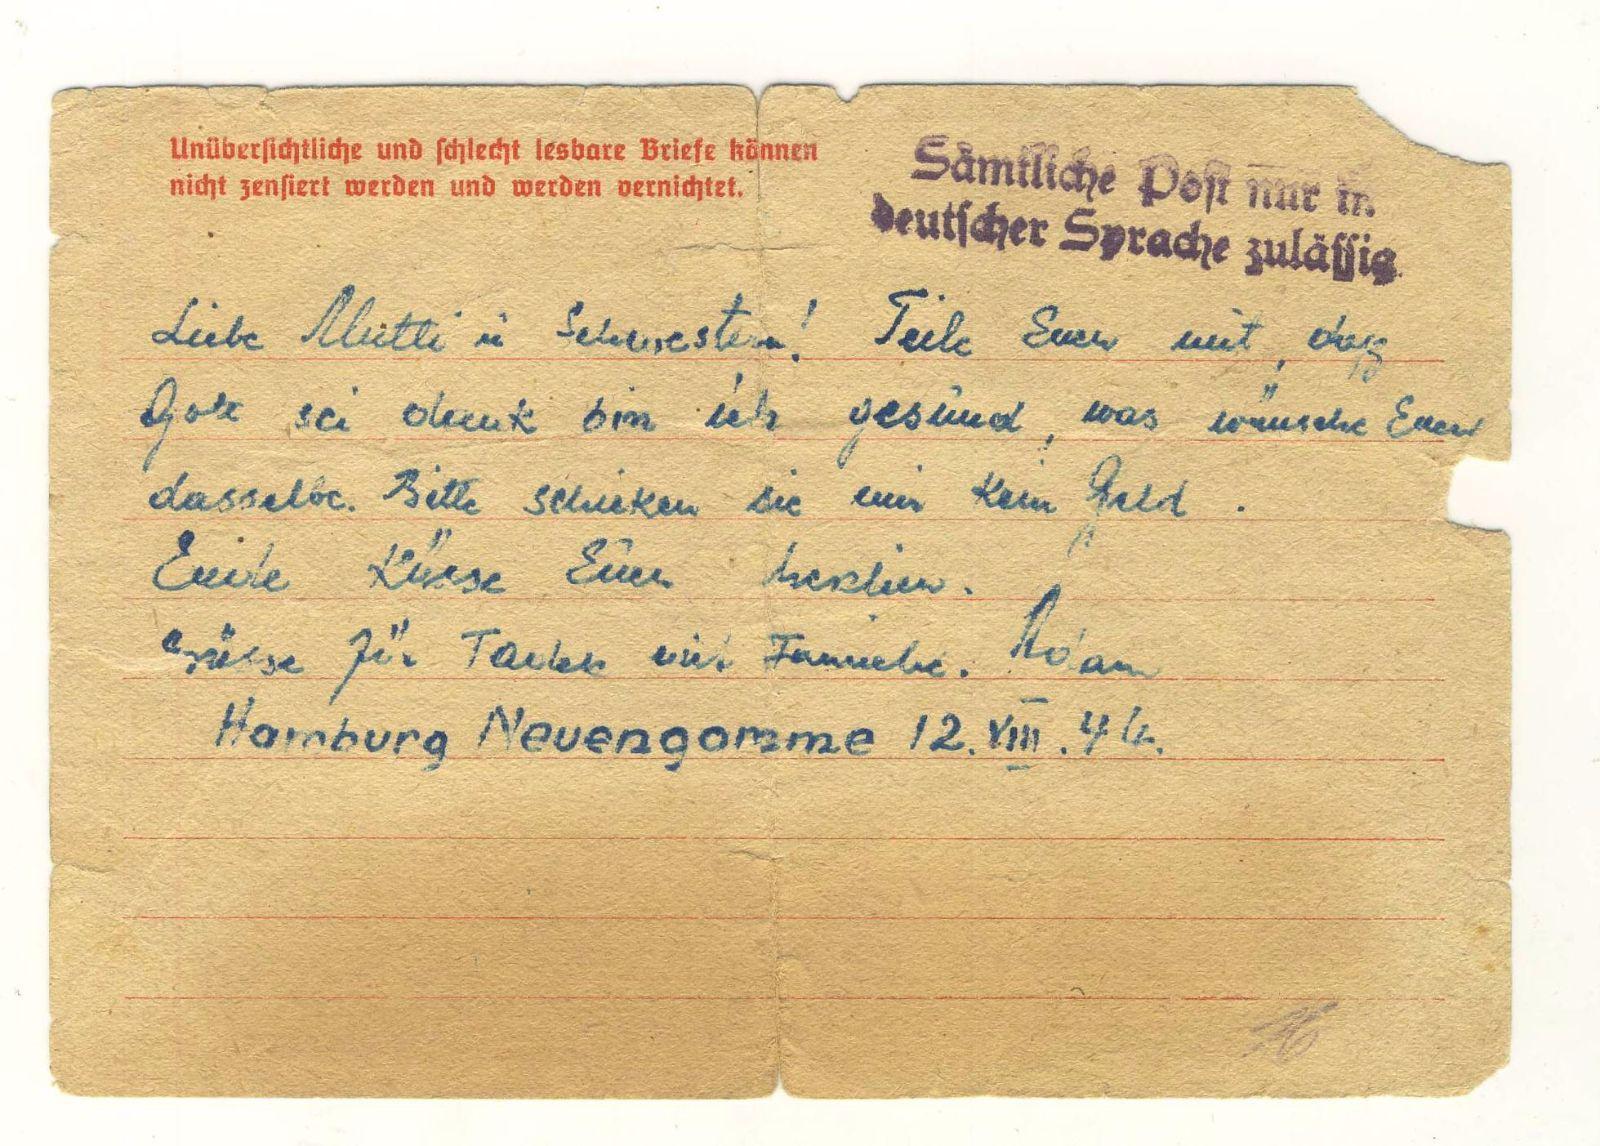 Unübersichtliche und schlecht lesbare Briefe können
nicht zensiert werden und werden vernichtet.
Sämtliche Post nur in
deutscher Sprache zulässig.
Liebe Mutti u Schwestern! Teile Euch mit, daß
Gott sei dank bin ich gesund, was wünsche Euch
dasselbe. Bitte schicken sie mir kein Geld.
Ende Küsse Euch herzlich.
Grüsse für Tadek mit Familie. Adam
Hamburg Neuengamme 12.VIII.44.